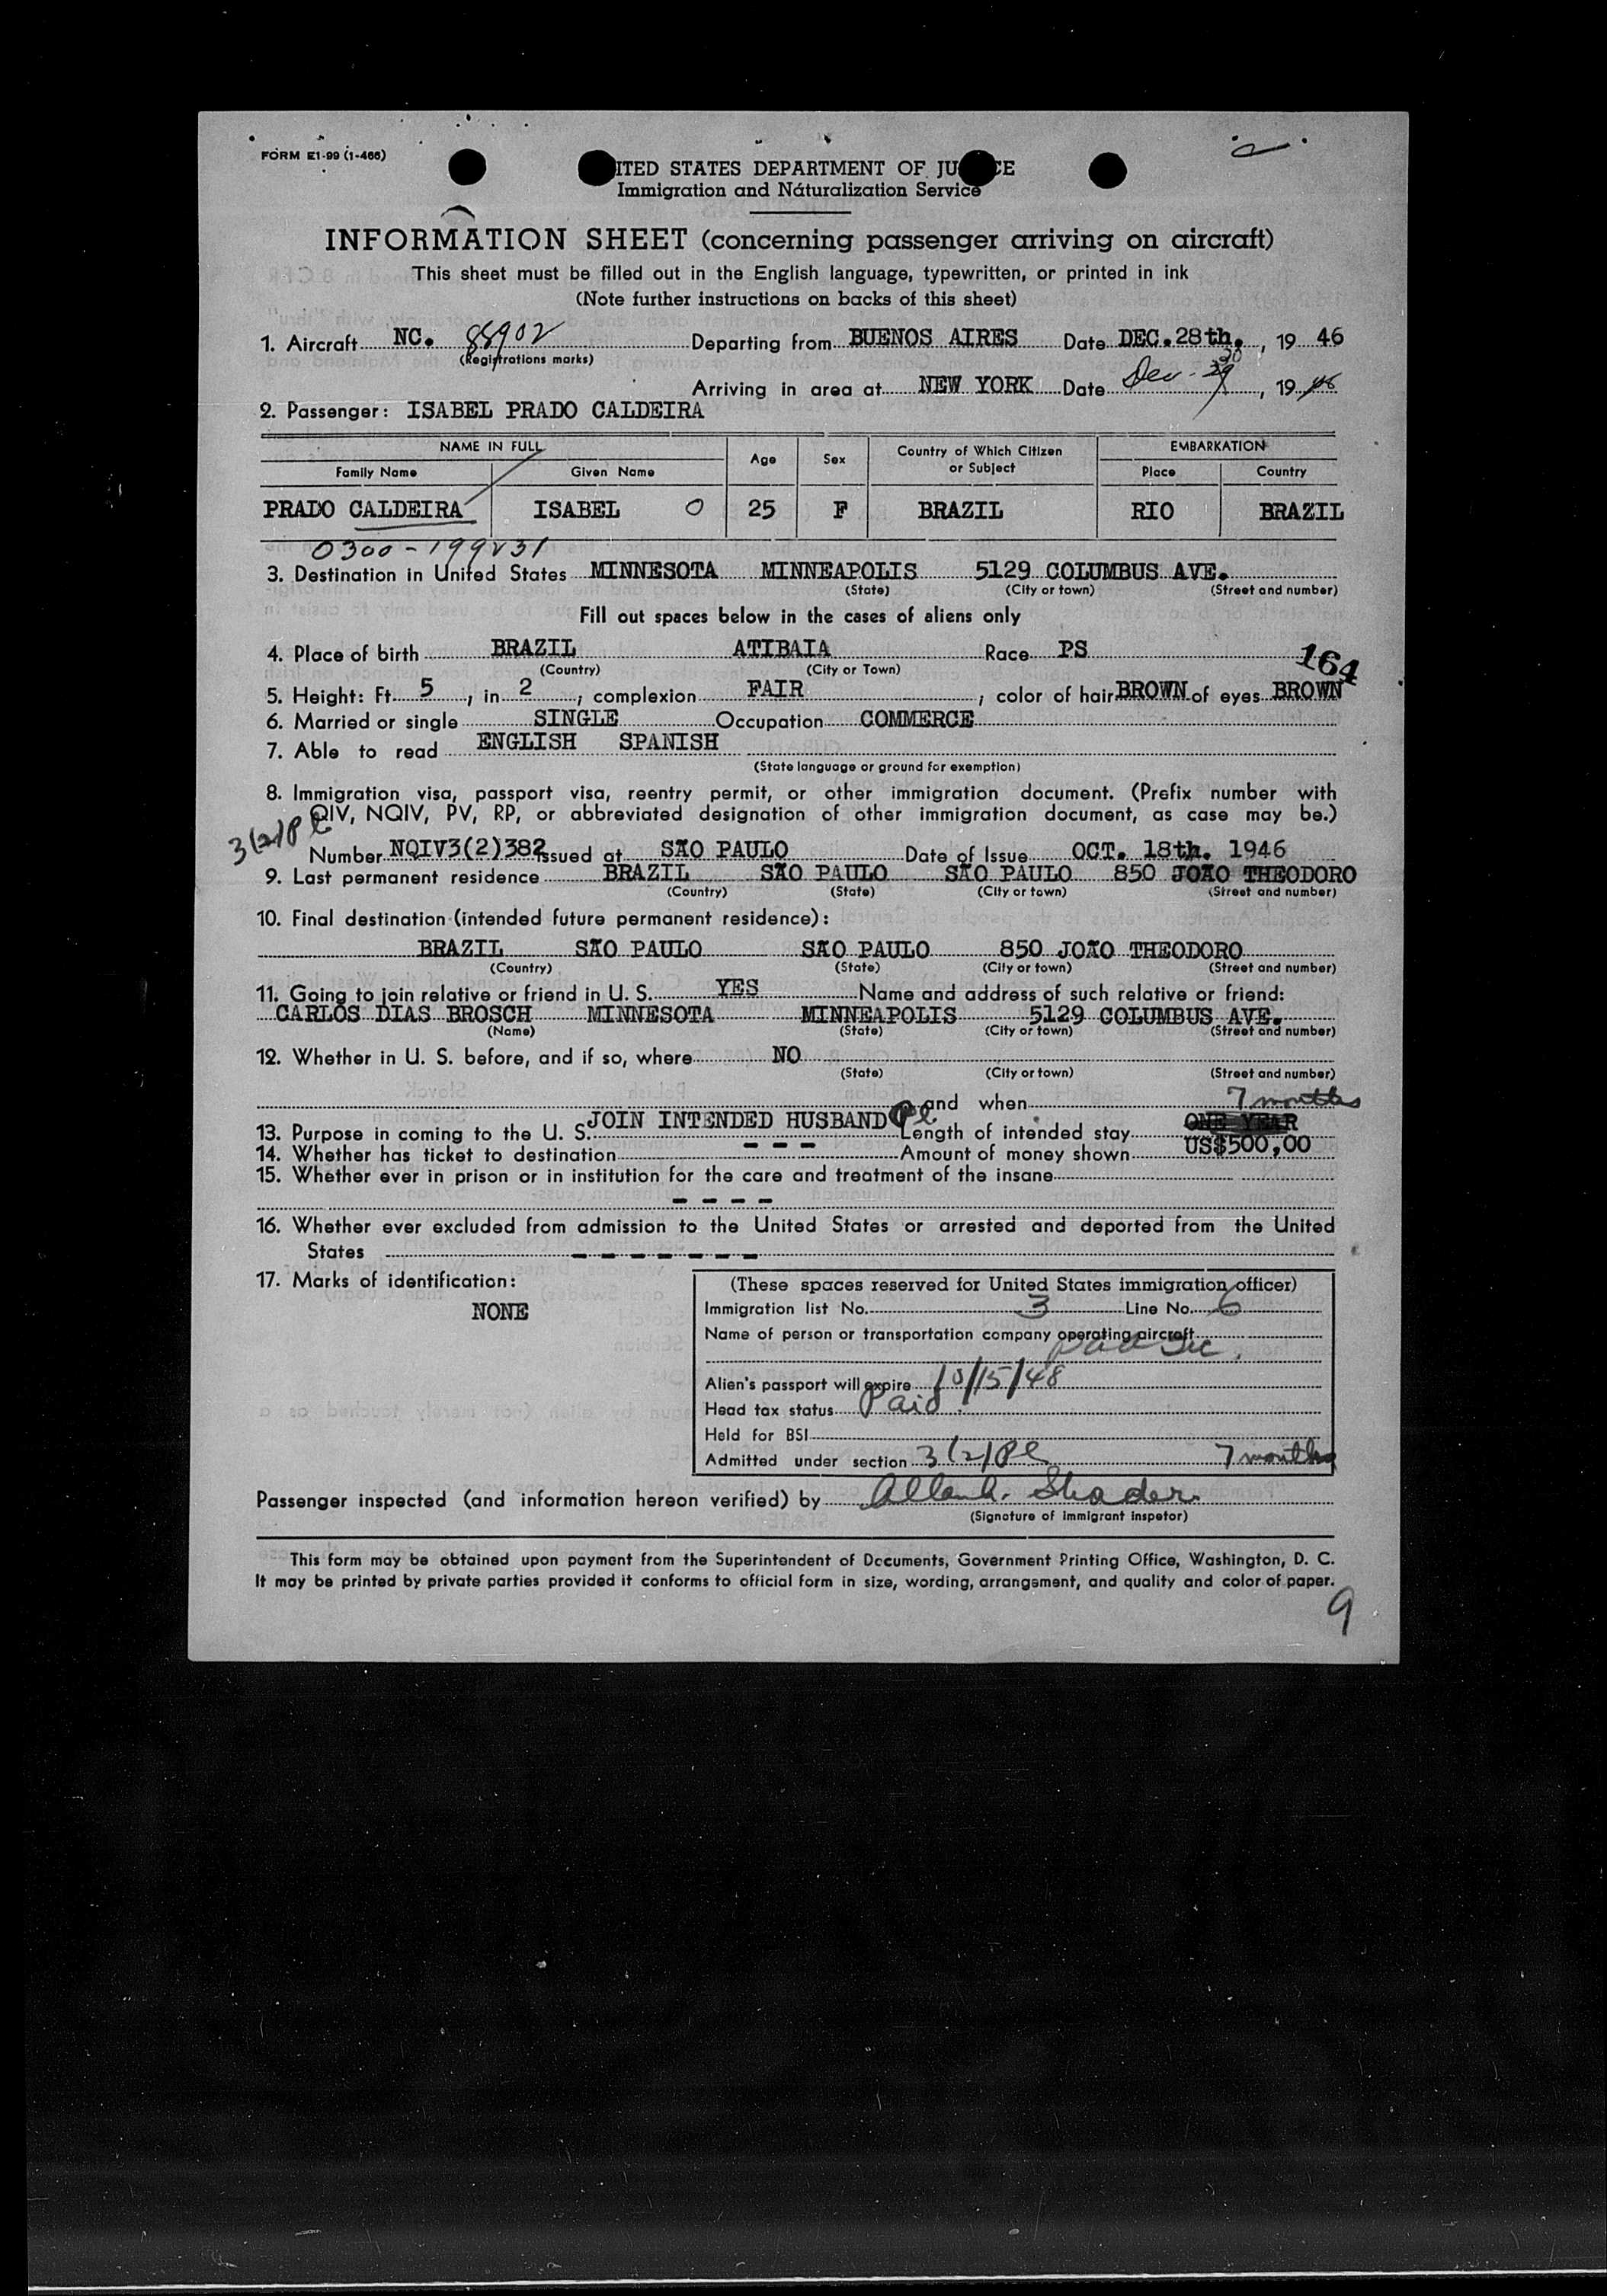 FORM E1-99 (1-466)
ITED STATES DEPARTMENT OF JU CE
Immigration and Naturalization Service
INFORMATION SHEET (concerning passenger arriving on aircraft)
This sheet must be filled out in the English language, typewritten, or printed in ink
(Note further instructions on backs of this sheet)
1. Aircraft NC. 88902 Departing from BUENOS AIRES Date DEC.28th. , 19 46
(Registrations marks)
Arriving in area at NEW YORK Date Dec. 29 30 , 19 46
2. Passenger: ISABEL PRADO CALDEIRA
NAME IN FULL Age Sex Country of Which Citizen or Subject EMBARKATION
Family Name Given Name Place Country
PRADO CALDEIRA ISABEL O 25 F BRAZIL RIO BRAZIL
0300-199231
3. Destination in United States MINNESOTA MINNEAPOLIS 5129 COLUMBUS AVE.
(State) (City or town) (Street and number)
Fill out spaces below in the cases of aliens only
4. Place of birth BRAZIL ATIBAIA Race PS 164
(Country) (City or Town)
5. Height: Ft. 5 , in 2 , complexion FAIR , color of hair BROWN of eyes BROWN
6. Married or single SINGLE Occupation COMMERCE
7. Able to read ENGLISH SPANISH
(State language or ground for exemption)
8. Immigration visa, passport visa, reentry permit, or other immigration document. (Prefix number with
QIV, NQIV, PV, RP, or abbreviated designation of other immigration document, as case may be.)
3(2)Pl
Number NQIV3(2)382 issued at SÃO PAULO Date of Issue OCT. 18th. 1946
9. Last permanent residence BRAZIL SÃO PAULO SÃO PAULO 850 JOÃO THEODORO
(Country) (State) (City or town) (Street and number)
10. Final destination (intended future permanent residence):
BRAZIL SÃO PAULO SÃO PAULO 850 JOÃO THEODORO
(Country) (State) (City or town) (Street and number)
11. Going to join relative or friend in U. S. YES Name and address of such relative or friend:
CARLOS DIAS BROSCH MINNESOTA MINNEAPOLIS 5129 COLUMBUS AVE.
(Name) (State) (City or town) (Street and number)
12. Whether in U. S. before, and if so, where NO
(State) (City or town) (Street and number)
and when 7 months
13. Purpose in coming to the U. S. JOIN INTENDED HUSBAND Pl Length of intended stay ONE YEAR
14. Whether has ticket to destination - - - Amount of money shown US$500,00
15. Whether ever in prison or in institution for the care and treatment of the insane
- - - -
16. Whether ever excluded from admission to the United States or arrested and deported from the United
States - - - - - - -
17. Marks of identification:
NONE
(These spaces reserved for United States immigration officer)
Immigration list No. 3 Line No. 6
Name of person or transportation company operating aircraft
Alien's passport will expire 10/15/48
Head tax status Paid.
Held for BSI
Admitted under section 3(2)Pl 7 months
Passenger inspected (and information hereon verified) by Allan A. Shader
(Signature of immigrant inspetor)
This form may be obtained upon payment from the Superintendent of Documents, Government Printing Office, Washington, D. C.
It may be printed by private parties provided it conforms to official form in size, wording, arrangement, and quality and color of paper.
9